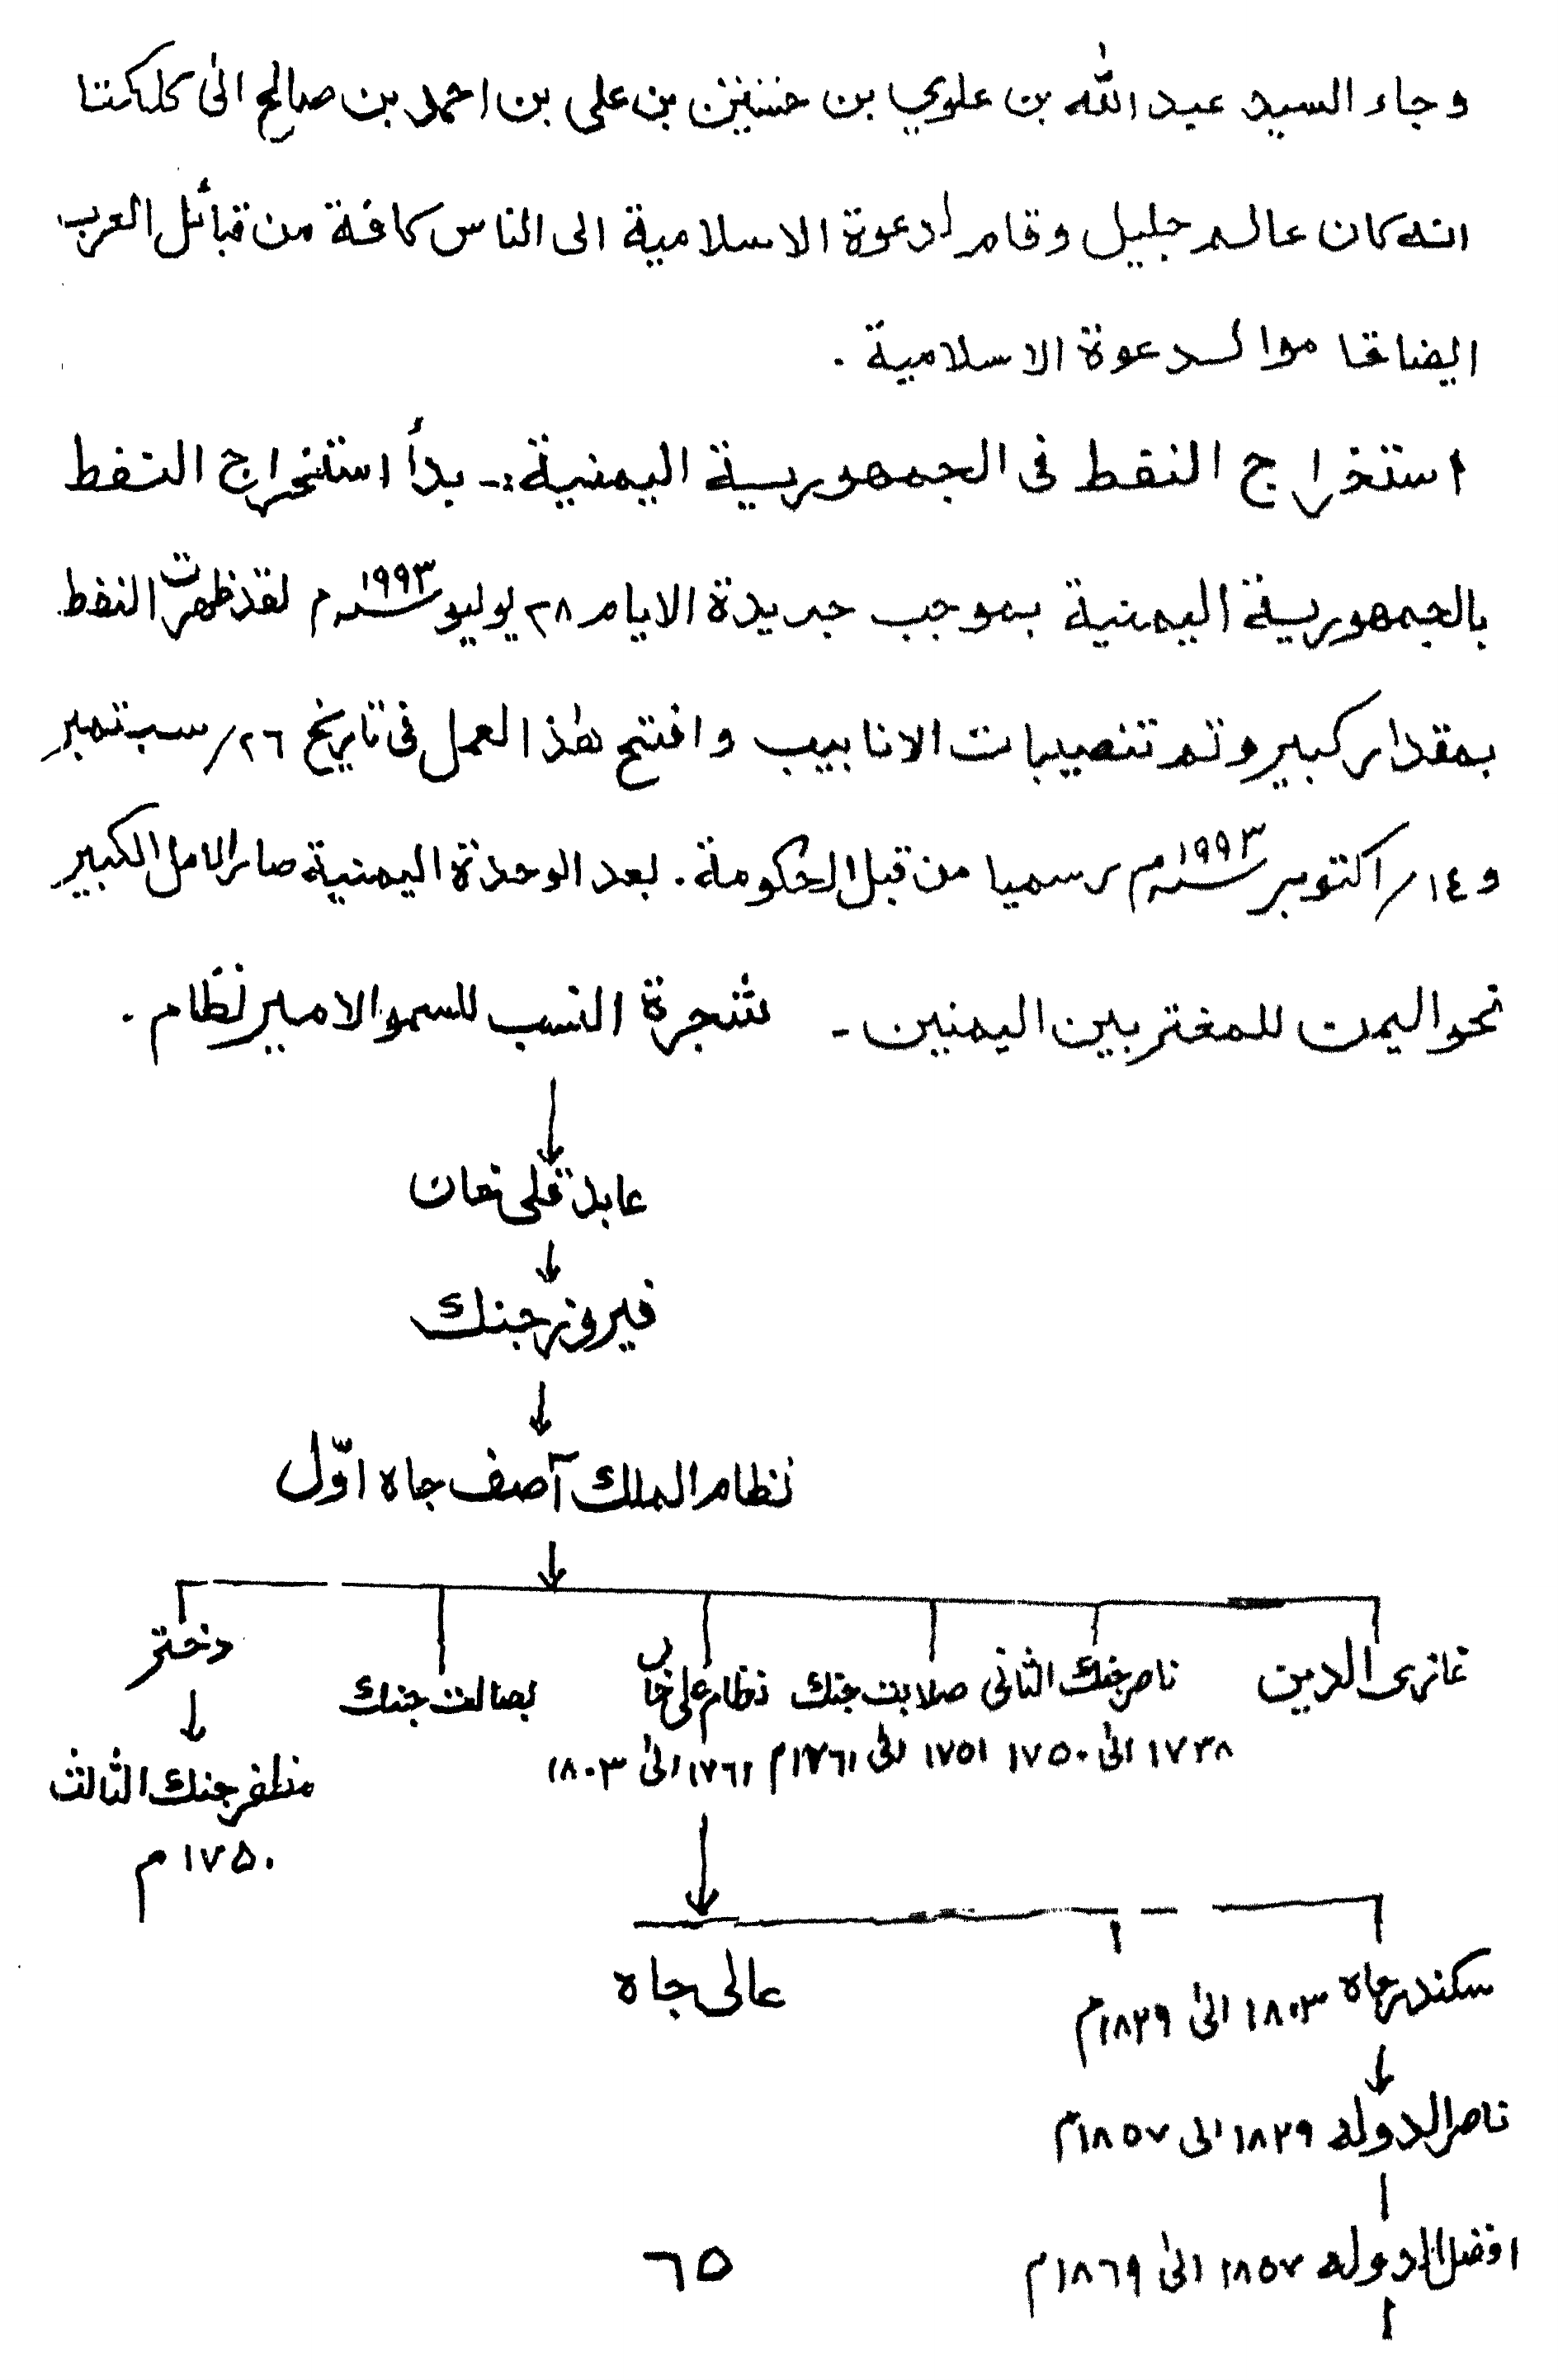 وجاء السيد عبد الله بن علوي بن حسنين بن على بن احمد بن صالح الى كلكتا
انه كان عالم جليل وقام لدعوة الاسلامية الى الناس كافة من قبائل العرب
ايضا قاموا لدعوة الاسلامية .
استخراج النفط فى الجمهورية اليمنية :- بدأ استخراج النفط
بالجمهورية اليمنية بموجب جريدة الايام ٢٨ يوليو سنه ١٩٩٣ م لقد ظهرت النفط
بمقدار كبير و تم تنصيبات الانابيب وافتتح هذا العمل فى تاريخ ٢٦/ سبتمبر
و ١٤/ اكتوبر سنه ١٩٩٣ م رسميا من قبل الحكومة . بعد الوحدة اليمنية صار الامل الكبير
نحو اليمن للمغتربين اليمنين - شجرة النسب للسمو الامير نظام .
عابد قلى خان
فيروز جنك
نظام الملك آصف جاه اوّل
غازى الدين ناصر جنك الثانى صلابت جنك نظام على خان بصالت جنك دختر
١٧٣٨ الى ١٧٥٠ ١٧٥١ الى ١٧٦١م ١٧٦١ الى ١٨٠٣
مظفر جنك الثالث
١٧٥٠ م
عالى جاه
سكندر جاه ١٨٠٣ الى ١٨٢٩م
ناصر الدوله ١٨٢٩ الى ١٨٥٧م
افضل الدوله ١٨٥٧ الى ١٨٦٩م
٦٥